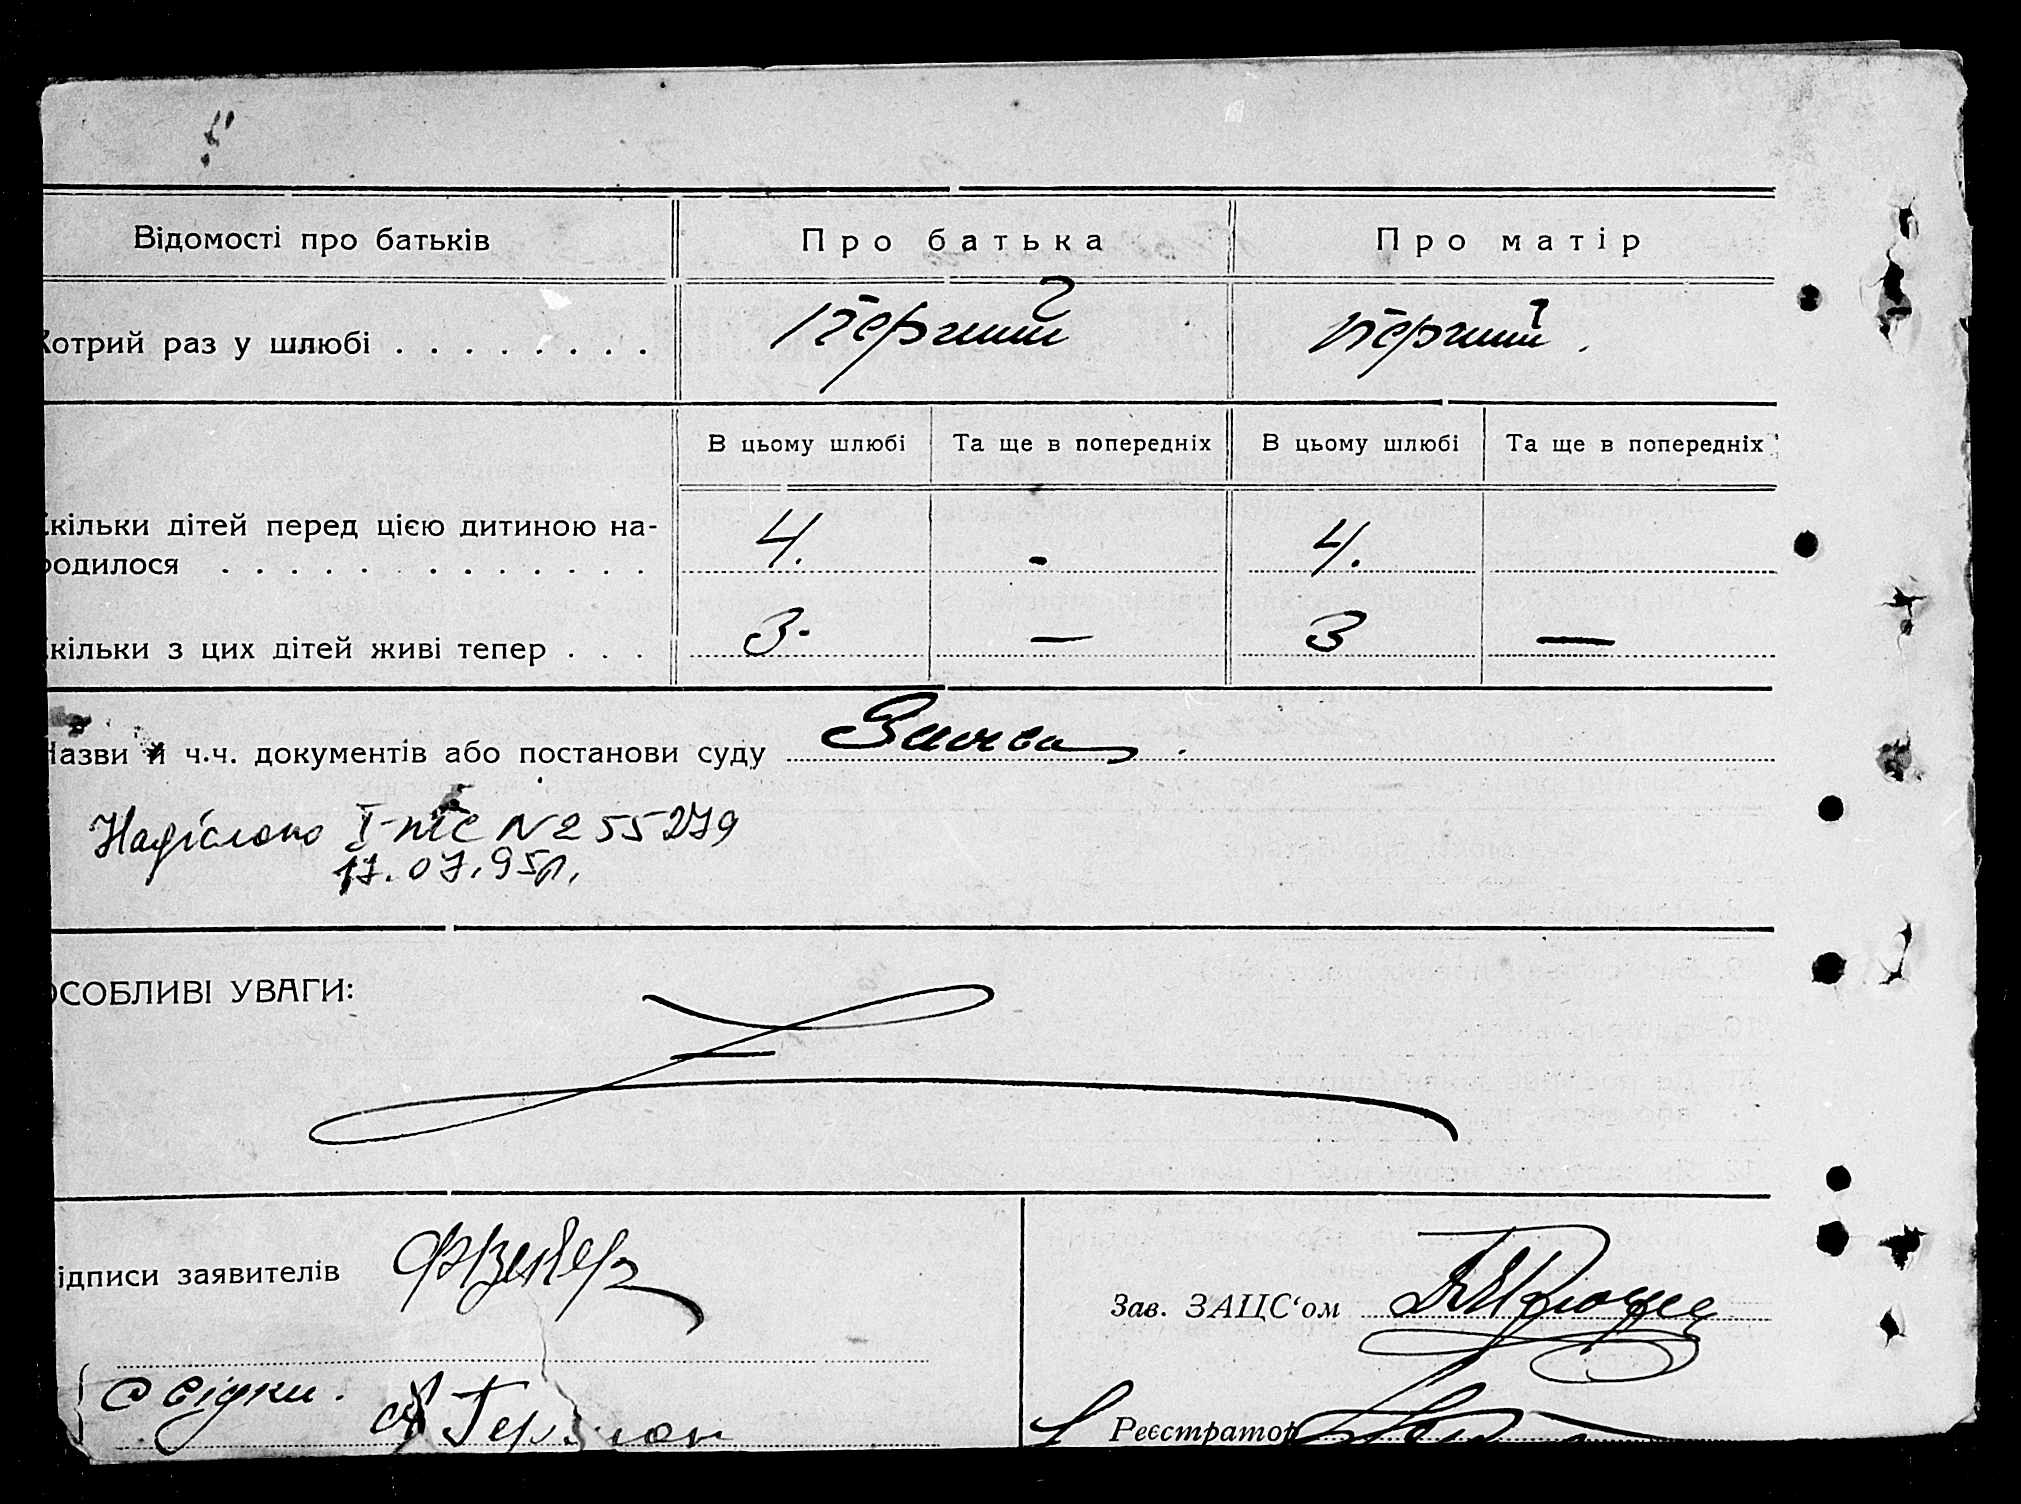 Відомості про батьків Про батька Про матір
Котрий раз у шлюбі . . . . . . . . Перший перший.
В цьому шлюбі Та ще в попередніх В цьому шлюбі Та ще в попередніх
кільки дітей перед цією дитиною на-
родилося . . . . . . . . . . . . . 4. - 4.
кільки з цих дітей живі тепер . . . 3. — 3 —
Назви й ч.ч. документів або постанови суду Заочва
Надіслано І-ПС № 255279
17.07.95р.
ОСОБЛИВІ УВАГИ:
ідписи заявителів
Зав. ЗАЦС‘ом
свідки.
Реєстратор